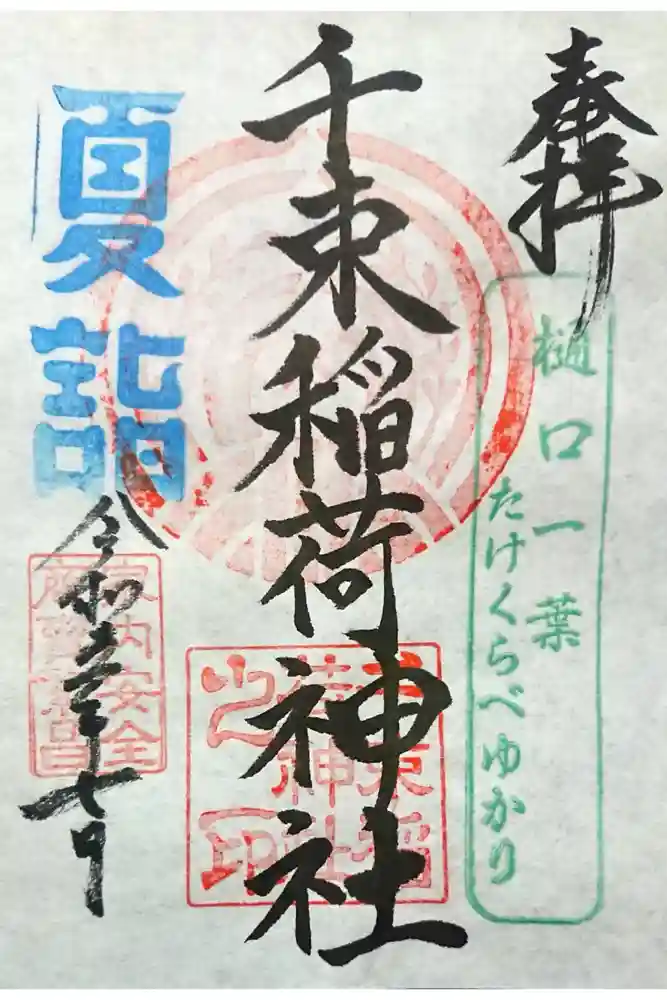 奉拝
樋口一葉
たけくらべゆかり
千束稲荷神社
千束稲
荷神社
之印
夏詣
家内安全
産業繁昌
令和三年七月